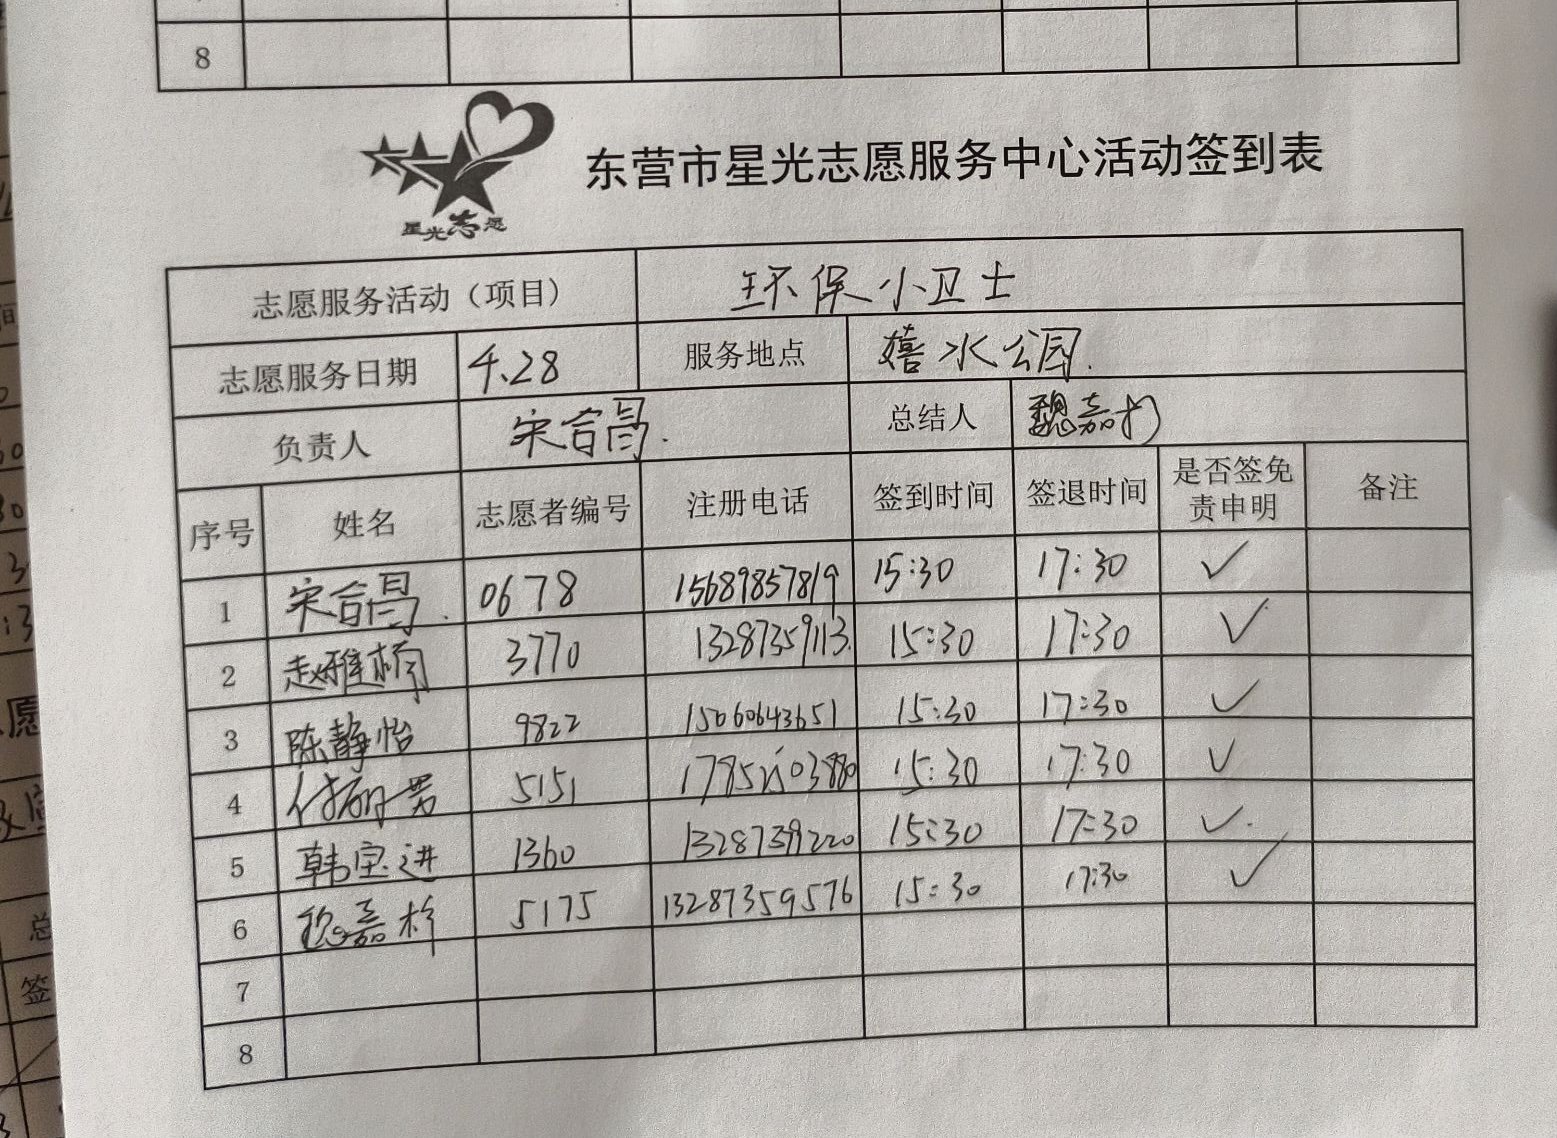 8
星光志愿
东营市星光志愿服务中心活动签到表
志愿服务活动（项目） 环保小卫士
志愿服务日期 4.28 服务地点 嬉水公园.
负责人 宋合昌. 总结人 魏嘉
序号 姓名 志愿者编号 注册电话 签到时间 签退时间 是否签免责申明 备注
1 宋合昌. 0678 15689857819 15:30 17:30 ✓
2 赵雅楠 3770 13287359113. 15:30 17:30 ✓
3 陈静怡 9822 15060643651 15:30 17:30 ✓
4 5151 15:30 17:30 ✓
5 韩宝进 1360 1328739220 15:30 17:30 ✓.
6 5175 13287359576 15:30 17:30 ✓
7
8